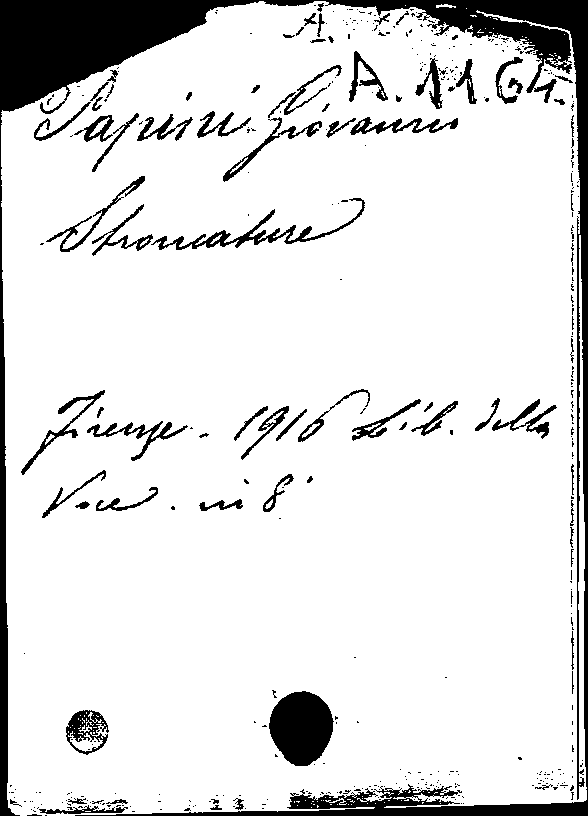 A.
A.11.64.
Papini Giovanni
Stroncature
Firenze - 1916 Lib. della
Voce. in 8°